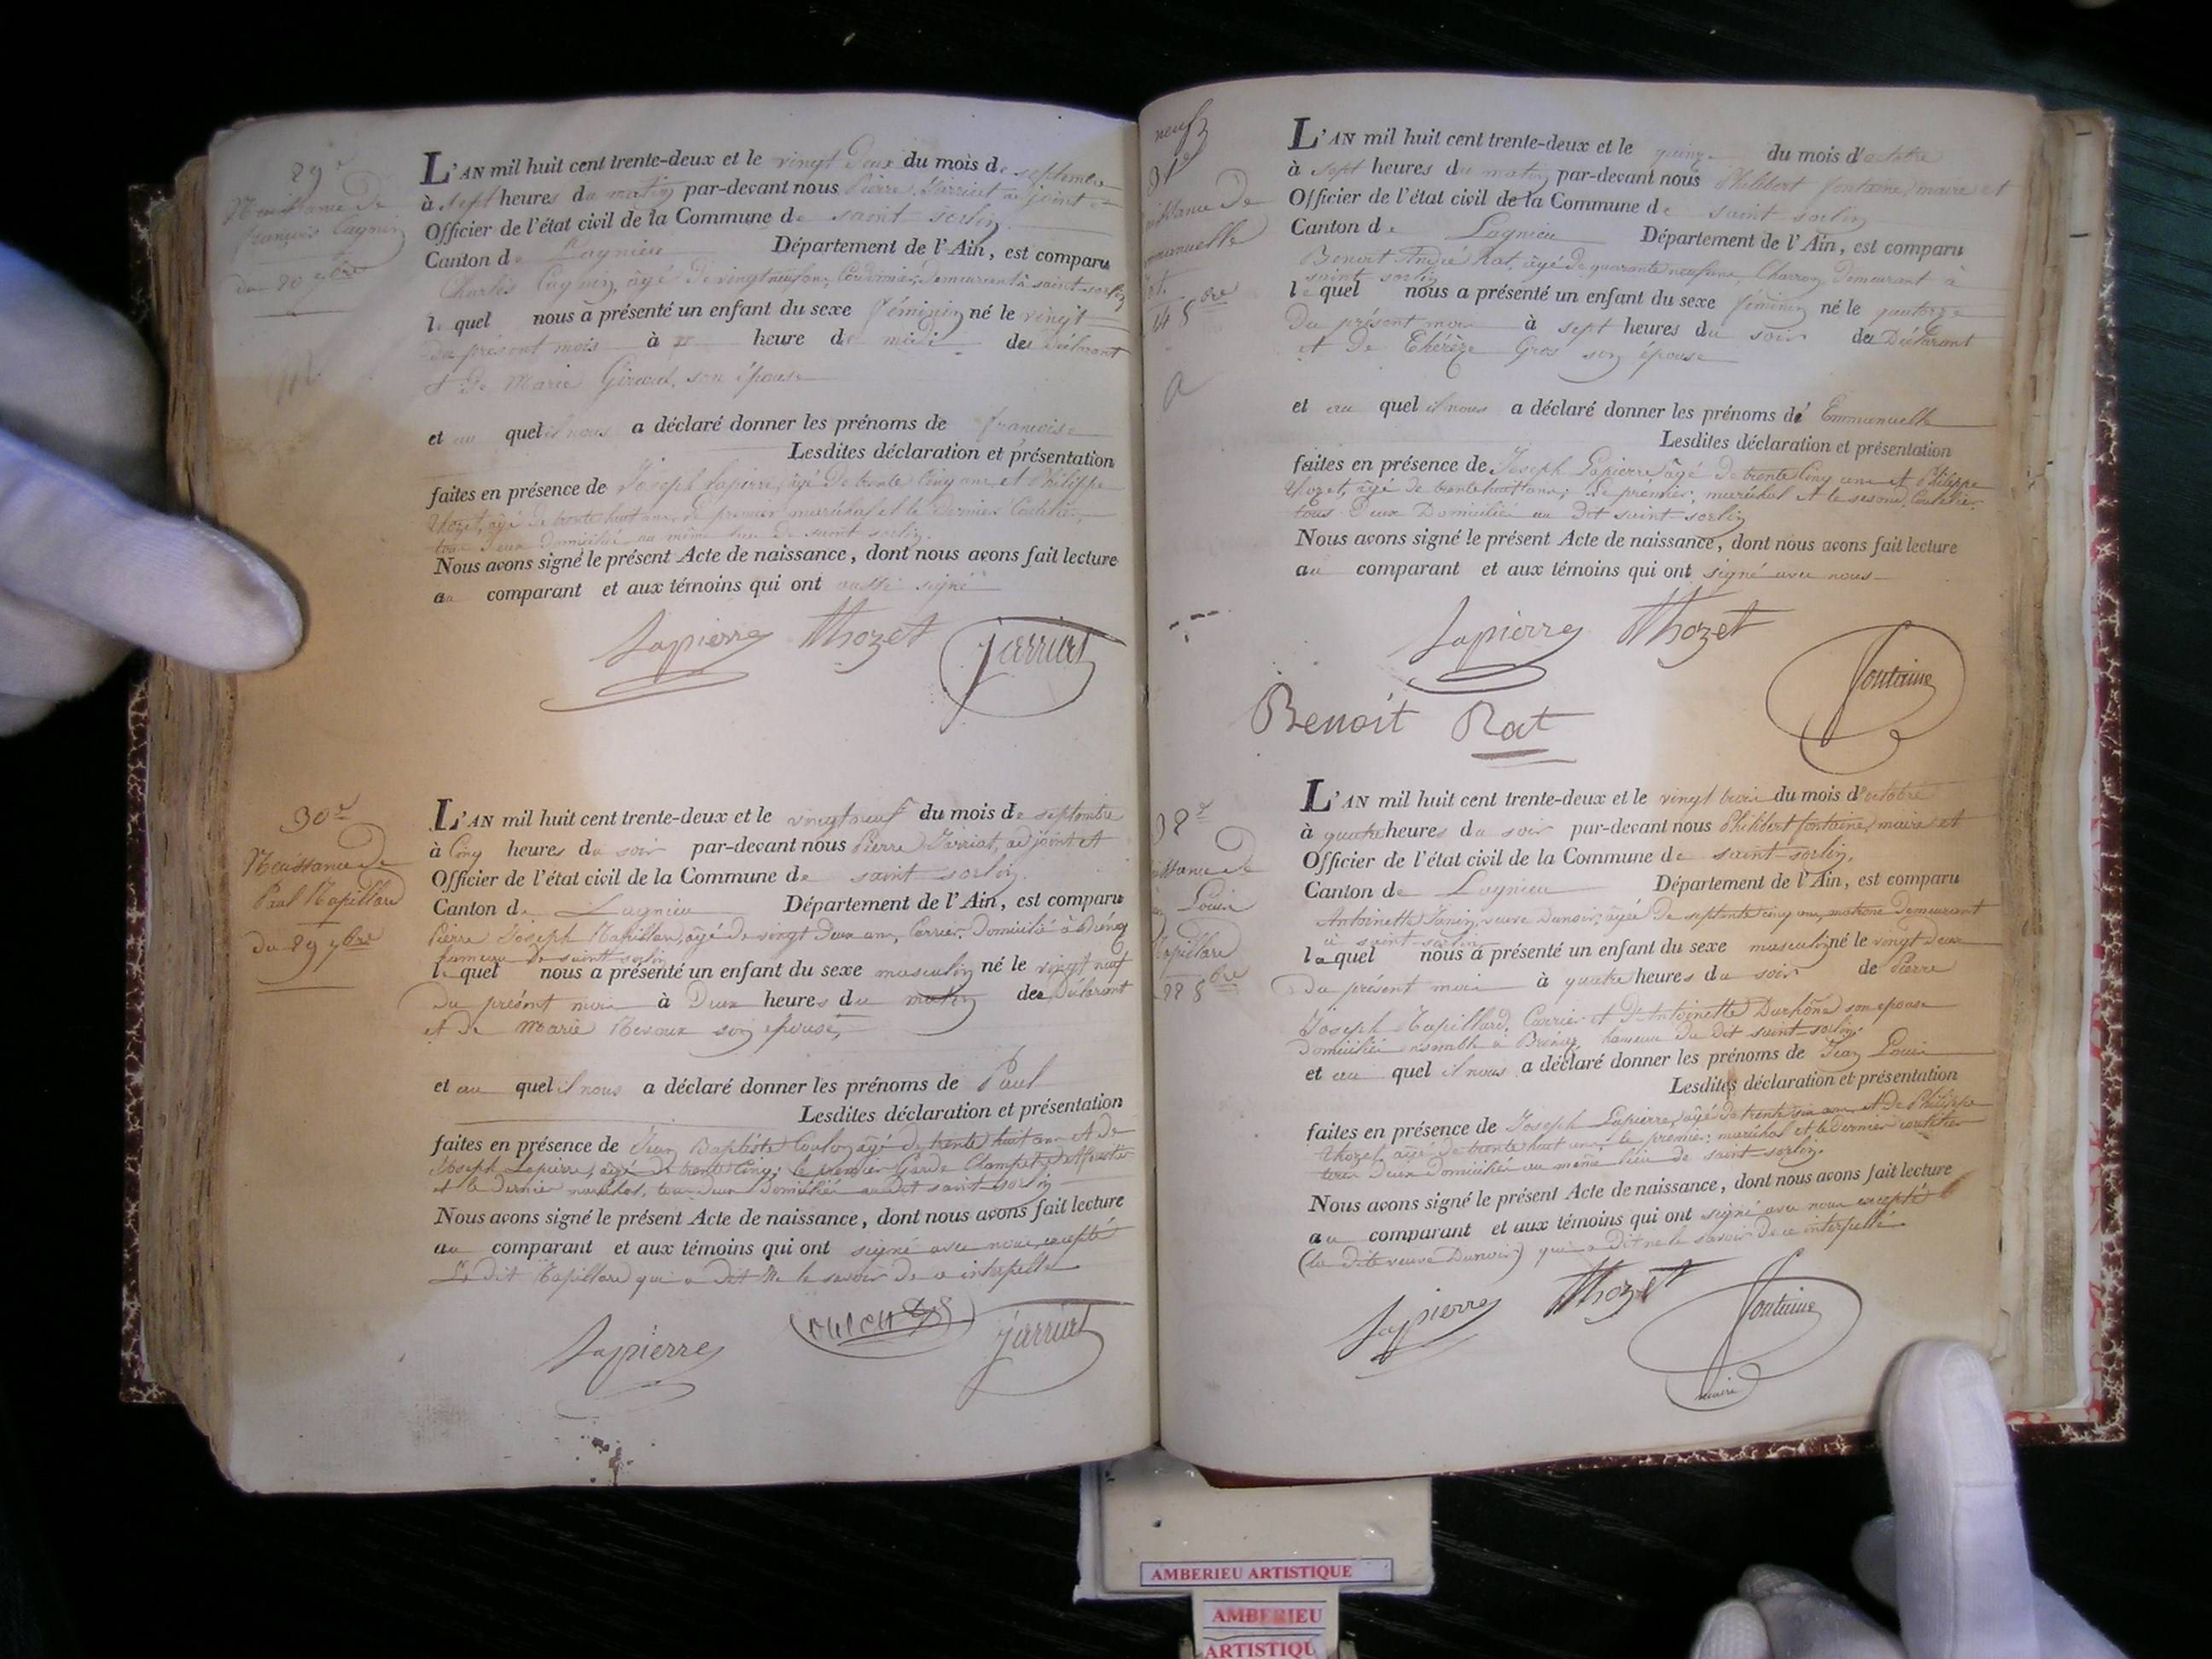 29e
Naissance de
françoise Cagnin
du 20 7bre
L'AN mil huit cent trente-deux et le vingt deux du mois de septembre
à sept heures du matin par-devant nous Pierre Jarriat adjoint et
Officier de l'état civil de la Commune de saint sorlin
Canton de Lagnieu Département de l'Ain, est comparu
Charles Cagnin, âgé de vingt neuf ans, Cordonnier, demeurant à saint sorlin
lequel nous a présenté un enfant du sexe féminin né le vingt
du présent mois à heure de midi de déclarant
et de Marie Giroud, son épouse
et au quel il nous a déclaré donner les prénoms de françoise
Lesdites déclaration et présentation
faites en présence de Joseph Lapierre, âgé de trente cinq ans et Philippe
Thozet, âgé de trente huit ans, le premier maréchal et le dernier Coutelier,
tous deux domiciliés au même lieu de saint-sorlin.
Nous avons signé le présent Acte de naissance, dont nous avons fait lecture
au comparant et aux témoins qui ont aussi signé
Lapierre Thozet Jarriat
30e
Naissance de
Paul Rapillard
du 29 7bre
L'AN mil huit cent trente-deux et le vingt neuf du mois de septembre
à Cinq heures du soir par-devant nous Pierre Jarriat, adjoint et
Officier de l'état civil de la Commune de saint sorlin.
Canton de Lagnieu Département de l'Ain, est comparu
Pierre Joseph Rapillard, âgé de vingt deux ans, Carrier, domicilié à
hameau de saint sorlin
lequel nous a présenté un enfant du sexe masculin né le vingt neuf
du présent mois à Deux heures du matin de Déclarant
et de Marie son épouse,
et au quel il nous a déclaré donner les prénoms de Paul
Lesdites déclaration et présentation
faites en présence de Jean Baptiste Coulon, âgé de trente huit ans et de
Joseph Lapierre, âgé de trente Cinq; le premier Garde Champêtre
et le dernier maréchal, tous deux Domiciliés au dit saint-sorlin
Nous avons signé le présent Acte de naissance, dont nous avons fait lecture
au comparant et aux témoins qui ont signé avec nous, excepté
Le dit Rapillard qui a dit ne le savoir de ce interpellé
Lapierre Coulon Jarriat
neuf
31e
Naissance de
Emmanuelle
Rat
14 8bre
a
L'AN mil huit cent trente-deux et le quinze du mois d'octobre
à sept heures du matin par-devant nous Philibert fontaine, maire et
Officier de l'état civil de la Commune de saint sorlin
Canton de Lagnieu Département de l'Ain, est comparu
Benoit André Rat, âgé de quarante neuf ans, Charron, demeurant à
saint sorlin
lequel nous a présenté un enfant du sexe féminin né le quatorze
du présent mois à sept heures du soir de Déclarant
et de Thérèze Gros son épouse
et au quel il nous a déclaré donner les prénoms de Emmanuelle
Lesdites déclaration et présentation
faites en présence de Joseph Lapierre, âgé de trente Cinq ans et Philippe
Thozet, âgé de trente huit ans; le premier, maréchal et le second, Coutelier,
tous Deux Domiciliés au dit saint-sorlin
Nous avons signé le présent Acte de naissance, dont nous avons fait lecture
au comparant et aux témoins qui ont signé avec nous
Lapierre Thozet
Benoit Rat
fontaine
Louis
Rapillard
22 8bre
L'AN mil huit cent trente-deux et le vingt trois du mois d'octobre
à quatre heures du soir par-devant nous Philibert fontaine, maire et
Officier de l'état civil de la Commune de saint-sorlin.
Canton de Lagnieu Département de l'Ain, est comparu
Antoinette Janin, veuve Dunoir, âgée de septante cinq ans, matrone demeurant
à saint-sorlin
laquel nous a présenté un enfant du sexe masculin né le vingt deux
du présent mois à quatre heures du soir de Pierre
Joseph Rapillard, Carrier et d'Antoinette son epouse
domiciliés ensemble à hameau du dit saint-sorlin.
et au quel il nous a déclaré donner les prénoms de Jean Louis
Lesdites déclaration et présentation
faites en présence de Joseph Lapierre, âgé de trente six ans et de Philippe
Thozet, âgé de trente huit ans; le premier; maréchal et le dernier coutelier
tous deux domiciliés au même lieu de saint-sorlin.
Nous avons signé le présent Acte de naissance, dont nous avons fait lecture
au comparant et aux témoins qui ont signé avec nous excepté
(la dite veuve Dunoir) qui a dit ne le savoir de ce interpellé.
Lapierre Thozet fontaine
maire
AMBERIEU ARTISTIQUE
AMBERIEU
ARTISTIQU